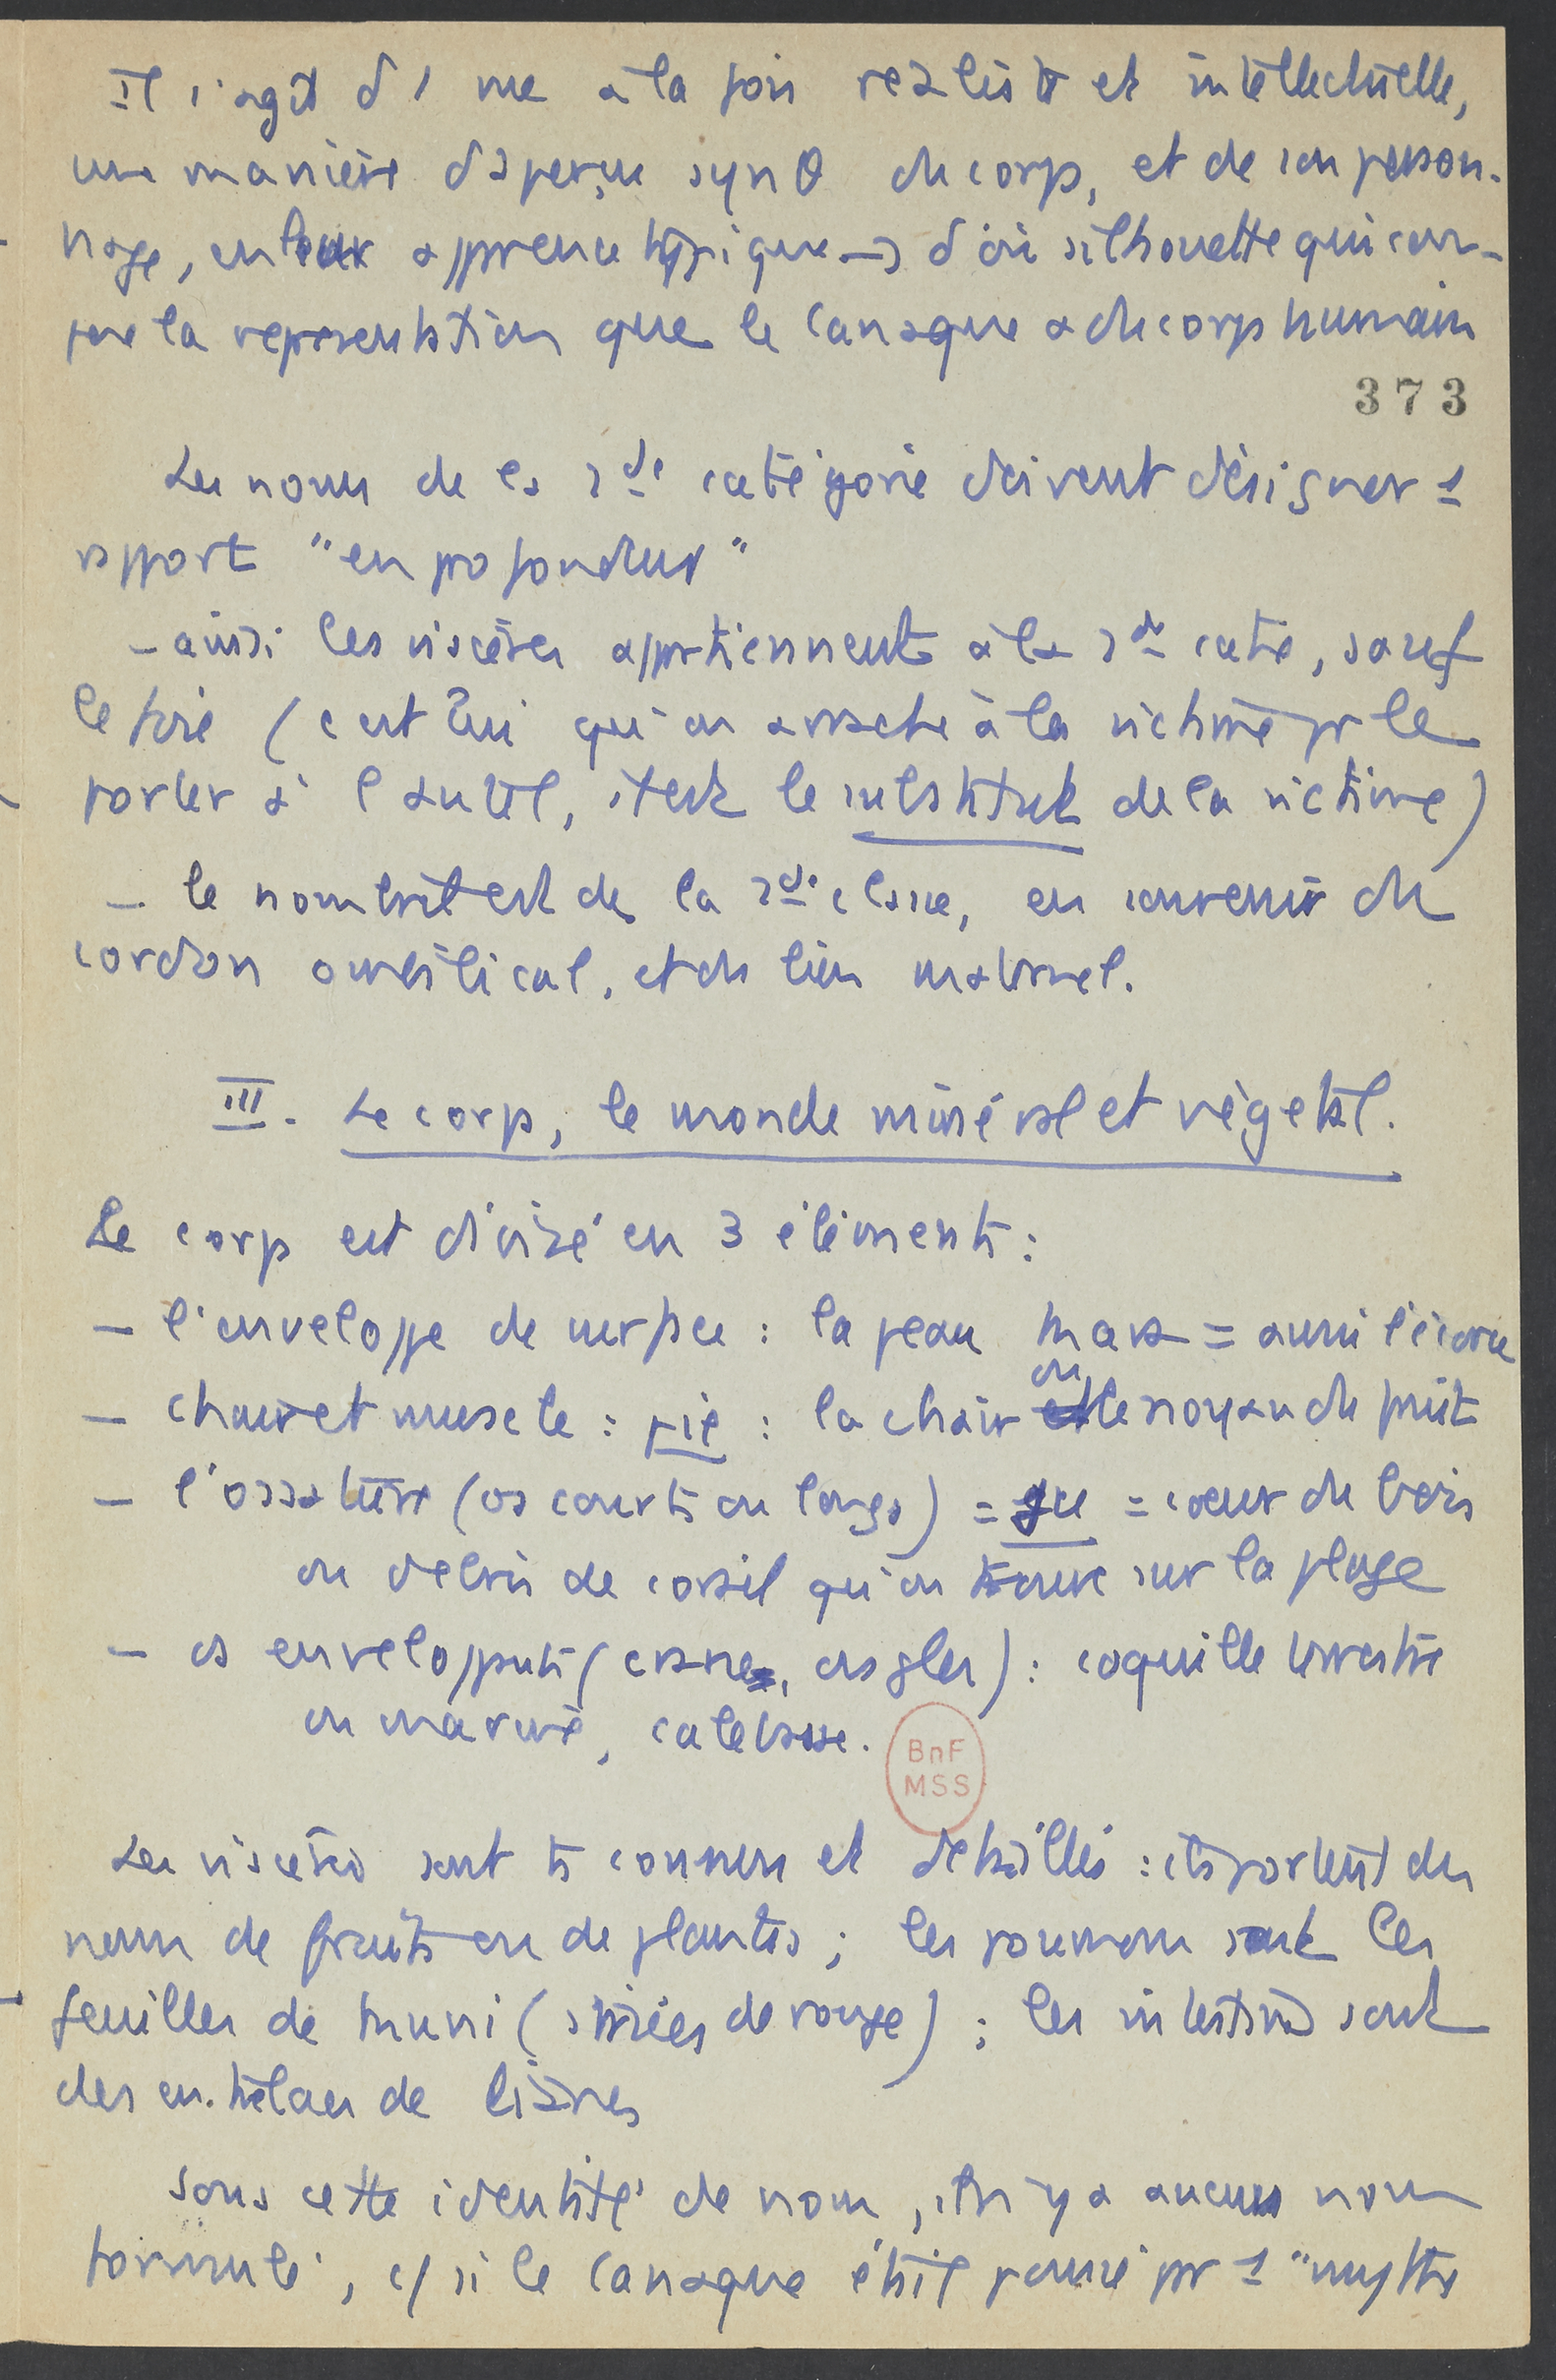 Il s'agit d'1 vue à la fois réaliste et intellectuelle,
une manière d'aperçu synθ du corps, et de son person-
nage, en leur apprence typique → d'où silhouette qui cor-
la representation que le Canaque a du corps humain
373
Les noms de la 2de catégorie doivent désigner 1
rapport "en profondeur"
- ainsi les viscères appartiennent à la 2de caté, sauf
le foie (c'est lui qu'on arrache à la victime pr le
porter à l'autel, il est le substitut de la victime)
- le nombril est de la 2de classe, en souvenir du
cordon ombilical, et du lien maternel.
III. Le corps, le monde minéral et végétal.
Le corps est divisé en 3 éléments :
- l'enveloppe de surface : la peau kara = aussi l'écorce
- chair et muscle : pié : la chair ou le noyau du fruit
- l'ossature (os courts ou longs) = ju = coeur du bois
ou débris de corail qu'on trouve sur la plage
- os enveloppants (crane, ongles) : coquille terrestre
ou marine, calebasse.
BnF
MSS
Les viscères sont ts connus et détaillés : ils portent des
noms de fruits ou de plantes ; les poumons sont les
feuilles de muni (striées de rouge) ; les intestins sont
des entrelacs de lianes
Sous cette identité de nom, il n'y a aucun nom
formulé, c/ si le Canaque était passé pr 1 "mythe